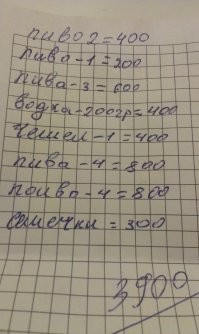 пиво 2 = 400
пива - 1 = 200
пива - 3 = 600
водка - 200гр = 400
чешел - 1 = 400
пива - 4 = 800
поива - 4 = 800
семечки = 300
3900